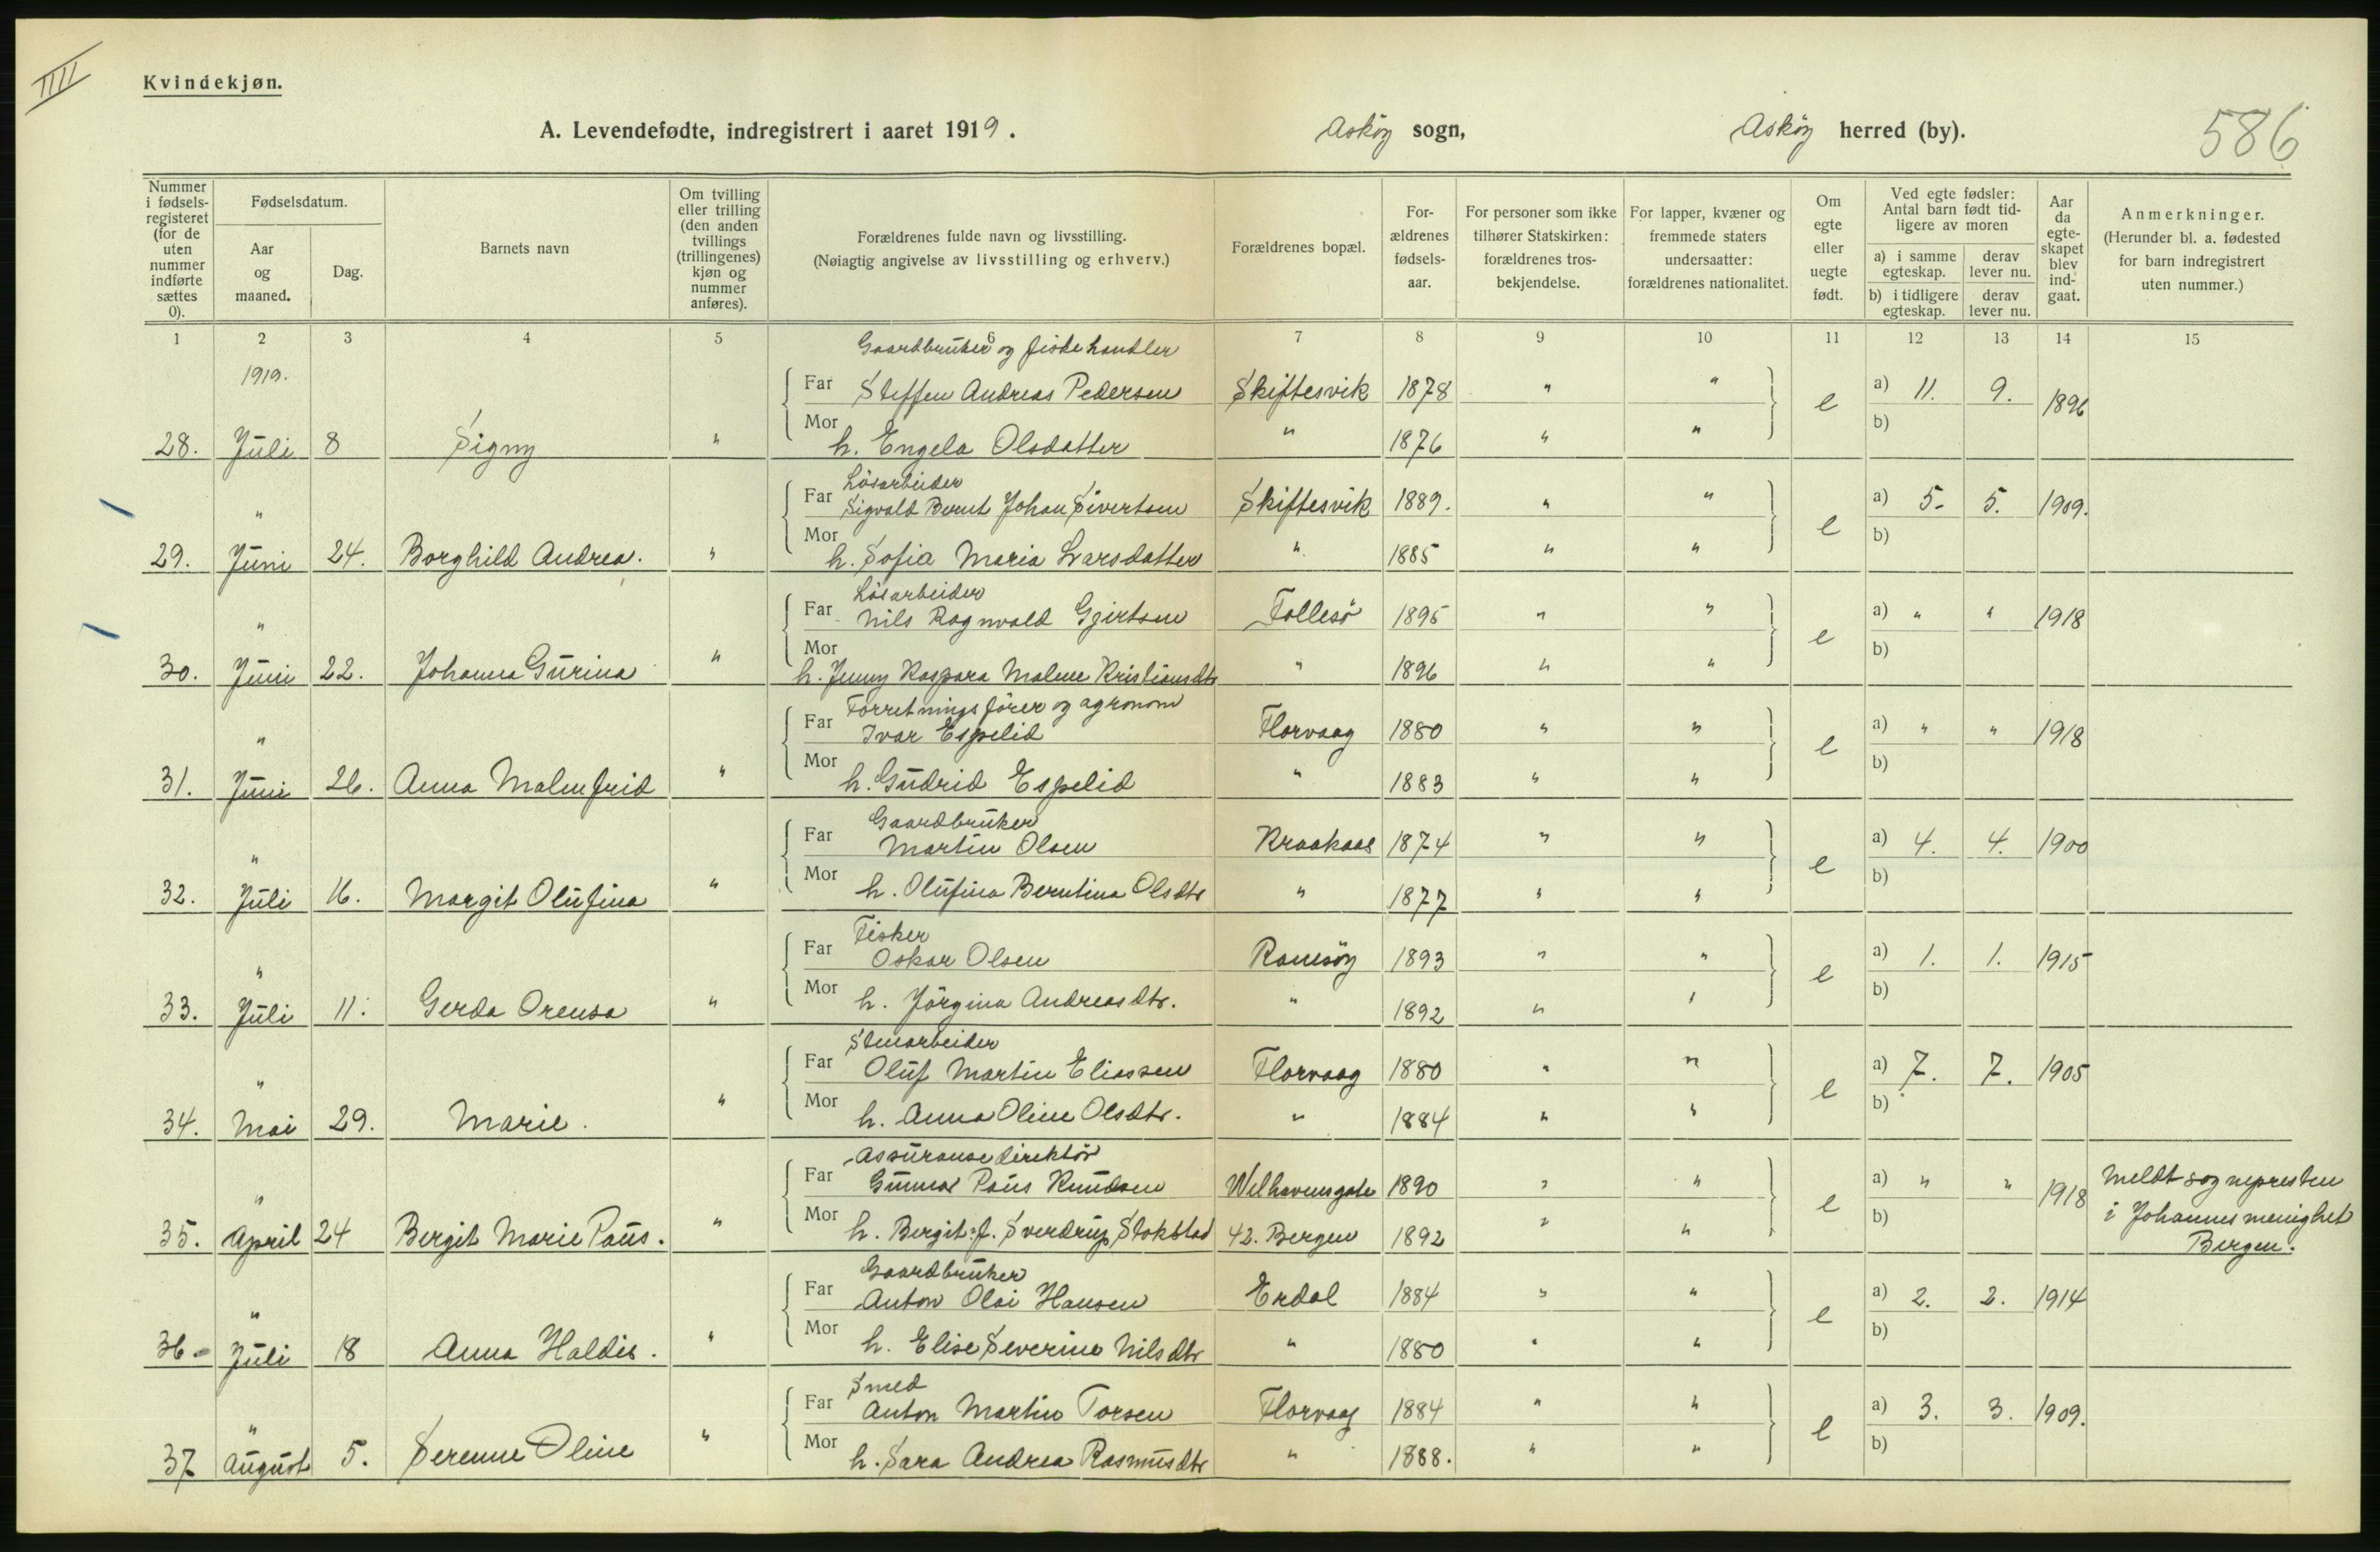 IIII
Kvindekjøn.
A. Levendefødte, indregistrert i aaret 1919. Askøy sogn, Askøy herred (by). 586
Nummer i fødsels-registeret (for de uten nummer indførte sættes 0).
Fødselsdatum.
Aar og maaned.
Dag.
Barnets navn
Om tvilling eller trilling (den anden tvillings (trillingenes) kjøn og nummer anføres).
Forældrenes fulde navn og livsstilling.
(Nøiagtig angivelse av livsstilling og erhverv.)
Forældrenes bopæl.
For-ældrenes fødsels-aar.
For personer som ikke tilhører Statskirken: forældrenes tros-bekjendelse.
For lapper, kvæner og fremmede staters undersaatter: forældrenes nationalitet.
Om egte eller uegte født.
Ved egte fødsler: Antal barn født tid-ligere av moren
a) i samme egteskap. derav lever nu.
b) i tidligere egteskap. derav lever nu.
Aar da egte-skapet blev ind-gaat.
Anmerkninger.
(Herunder bl. a. fødested for barn indregistrert uten nummer.)
1 2 3 4 5 6 7 8 9 10 11 12 13 14 15
Gaardbruker og fiskehandler
1919.
Far Steffen Andreas Pedersen Skiftesvik 1878 " " e a) 11. 9. 1896
28. Juli 8 Signy " Mor h. Engela Olsdatter " 1876 " " b)
Løsarbeider
" Far Sigvald Bernt Johan Sivertsen Skiftesvik 1889. " " e a) 5. 5. 1909.
29. Juni 24. Borghild Andrea. " Mor h. Sofia Maria Larsdatter " 1885 " " b)
Løsarbeider
" Far Nils Ragnvald Gjertsen Follesø 1895 " " e a) " " 1918
30. Juni 22. Johanna Gurina " Mor h. Jenny Kaspara Malene Kristiansdtr " 1896 " " b)
Forretningsfører og agronom
" Far Ivar Espelid Florvaag 1880 " " e a) " " 1918
31. Juni 26. Anna Malmfrid " Mor h. Gudrid Espelid " 1883 " " b)
Gaardbruker
" Far Martin Olsen Kraakaas 1874 " " e a) 4. 4. 1900
32. Juli 16. Margit Olufina " Mor h. Olufina Berntina Olsdtr " 1877 " " b)
Fisker
" Far Oskar Olsen Ramsøy 1893 " " e a) 1. 1. 1915
33. Juli 11. Gerda Orensa " Mor h. Jørgina Andreasdtr. " 1892 " " b)
Stenarbeider
" Far Oluf Martin Eliassen Florvaag 1880 " " e a) 7. 7. 1905
34. Mai 29. Marie. " Mor h. Anna Oline Olsdtr. " 1884 " " b)
Assuransedirektør
" Far Gunnar Paus Knudsen Welhavensgate 1890 " " e a) " " 1918 Meldt sognepresten
35. April 24 Bergit Marie Paus. " Mor h. Bergit f. Sverdrup Stokstad 42. Bergen 1892 " " b) i Johannes menighet
Bergen.
Gaardbruker
" Far Anton Olai Hansen Erdal 1884 " " e a) 2. 2. 1914
36 Juli 18 Anna Haldis. " Mor h. Elise Severine Nilsdtr " 1880 " " b)
Smed
" Far Anton Martin Torsen Florvaag 1884 " " e a) 3. 3. 1909.
37 August 5. Serenne Oline " Mor h. Sara Andrea Rasmusdtr " 1888. " " b)